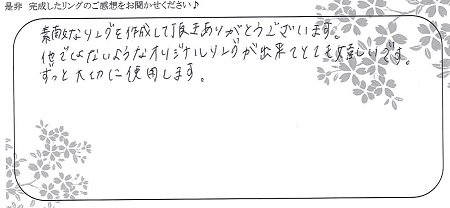 是非 完成したリングのご感想をお聞かせください♪
素敵なリングを作成して頂きありがとうございます。
他でないようなオリジナルリングが出来てとても嬉しいです。
ずっと大切に使用します。